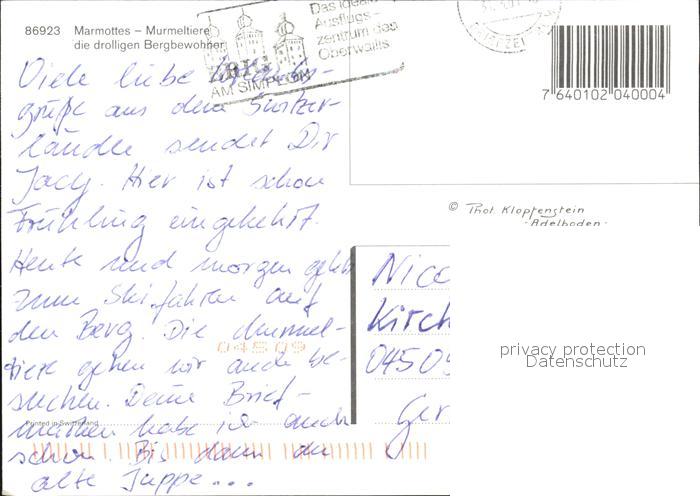 86923 Marmottes – Murmeltiere
die drolligen Bergbewohner
Das ideale
Ausflugs-
zentrum des
Oberwallis
BRIG
AM SIMPLON
7 640102 040004
Viele liebe
grüße aus dem Switzer-
ländle sendet Dir
Jacy. Hier ist schon
Frühling eingekehrt.
Heute und morgen gehts
zum Skifahren auf
den Berg. Die Murmel-
tiere gehen wir auch be-
suchen. Deine Brief-
marken habe ich auch
schon. Bis dann du
alte Suppe...
© Phot. Klopfenstein
- Adelboden -
Nico
Kirch
04509
Ger
04509
privacy protection
Datenschutz
Printed in Switzerland